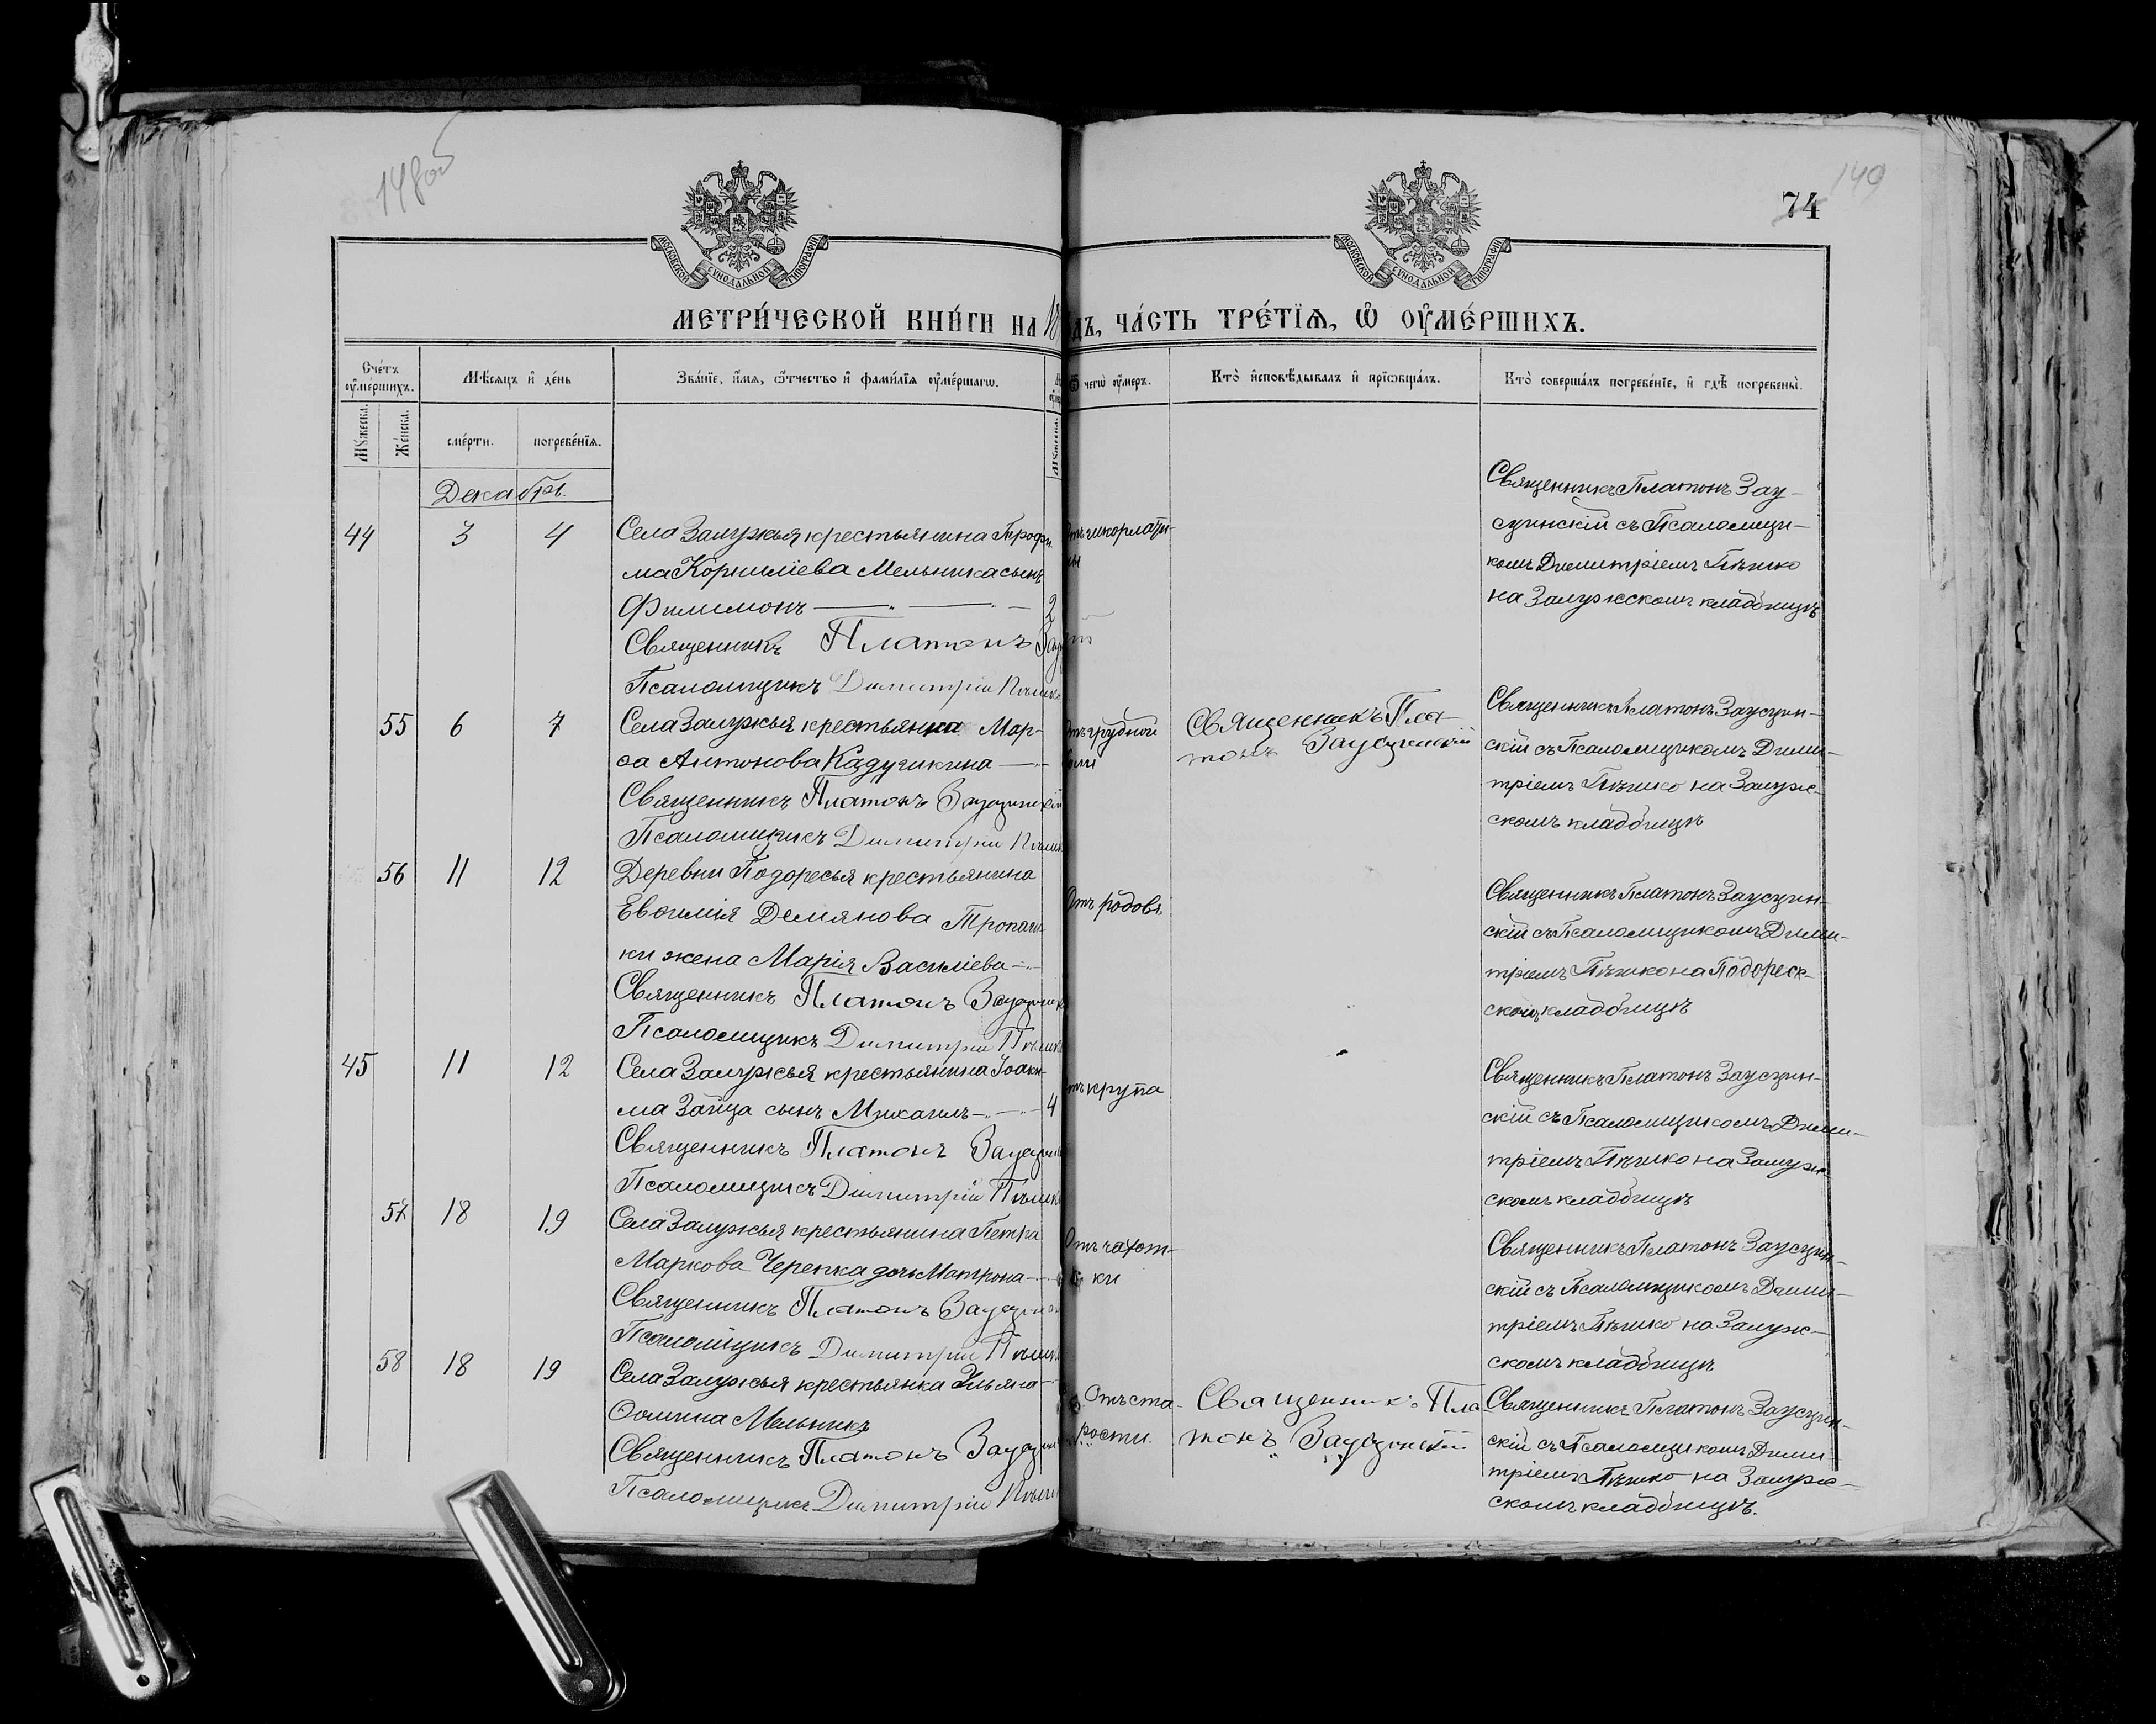 148об
149
74
МОСКОВСКОЙ СУНОДАЛЬНОЙ ТИПОГРАФІИ
МОСКОВСКОЙ СУНОДАЛЬНОЙ ТИПОГРАФІИ
МЕТРИ́ЧЕСКОЙ КНИ́ГИ НА 18 ДЪ, ЧА́СТЬ ТРЕ́ТЇѦ, Ѡ ОУМЕ́РШИХЪ.
Сче́тъ оуме́ршихъ.
Мѣсяцъ и де́нь
Зва́нїе, и́мя, ѻ́тчество и фами́лїя оуме́ршагѡ.
Ѿ чегѡ̀ оу́меръ.
Кто̀ исповѣ́дывалъ и прїѡбща́лъ.
Кто̀ соверша́лъ погребе́нїе, и гдѣ̀ погребены̀.
Мꙋжеска.
Же́нска.
сме́рти.
погребе́нїя.
Мꙋжеска.
Декабрь.
44 3 4
Села Залужья крестьянина Трофи-
ма Корнилiева Мельника сынъ
Филимонъ 2
Священникъ Платонъ
Псаломщикъ Димитрій
Священникъ Платонъ Зау-
сцинскій съ Псаломщи-
комъ Димитріемъ Пѣшко
на Залужскомъ кладбищѣ
55 6 7
Села Залужья крестьянка Мар-
ѳа Антонова Кадушкина
Священникъ Платонъ Заусцинскій
Псаломщикъ Димитрій
Отъ грудной
боли
Священникъ Пла-
тонъ Заусцинскій
Священникъ Платонъ Заусцин-
скій съ Псаломщикомъ Дими-
тріемъ Пѣшко на Залуж-
скомъ кладбищѣ
56 11 12
Деревни Подоресья крестьянина
Евѳимія Демянова
жена Марія Василіева
Священникъ Платонъ
Псаломщикъ Димитрій
Отъ родовъ
Священникъ Платонъ Заусцин-
скій съ Псаломщикомъ Дими-
тріемъ Пѣшко на Подореск-
скомъ кладбищѣ
45 11 12
Села Залужья крестьянина Іоаки-
ма Зайца сынъ Михаилъ 4
Священникъ Платонъ
Псаломщикъ Димитрій
тъ крупа
Священникъ Платонъ Заусцин-
скій съ Псаломщикомъ Дими-
тріемъ Пѣшко на Залуж-
скомъ кладбищѣ
57 18 19
Села Залужья крестьянина Петра
Маркова Черепка дочь Матрона
Священникъ Платонъ
Псаломщикъ Димитрій
Отъ чахот-
ки
Священникъ Платонъ Заусцин-
скій съ Псаломщикомъ Дими-
тріемъ Пѣшко на Залуж-
скомъ кладбищѣ
58 18 19
Села Залужья крестьянка Ульяна
Ѳомина Мельникъ
Священникъ Платонъ
Псаломщикъ Димитрій
Отъ ста-
рости.
Священникъ Пла-
тонъ Заусцинскій
Священникъ Платонъ Заусцин-
скій съ Псаломщикомъ Дими-
тріемъ Пѣшко на Залуж-
скомъ кладбищѣ.